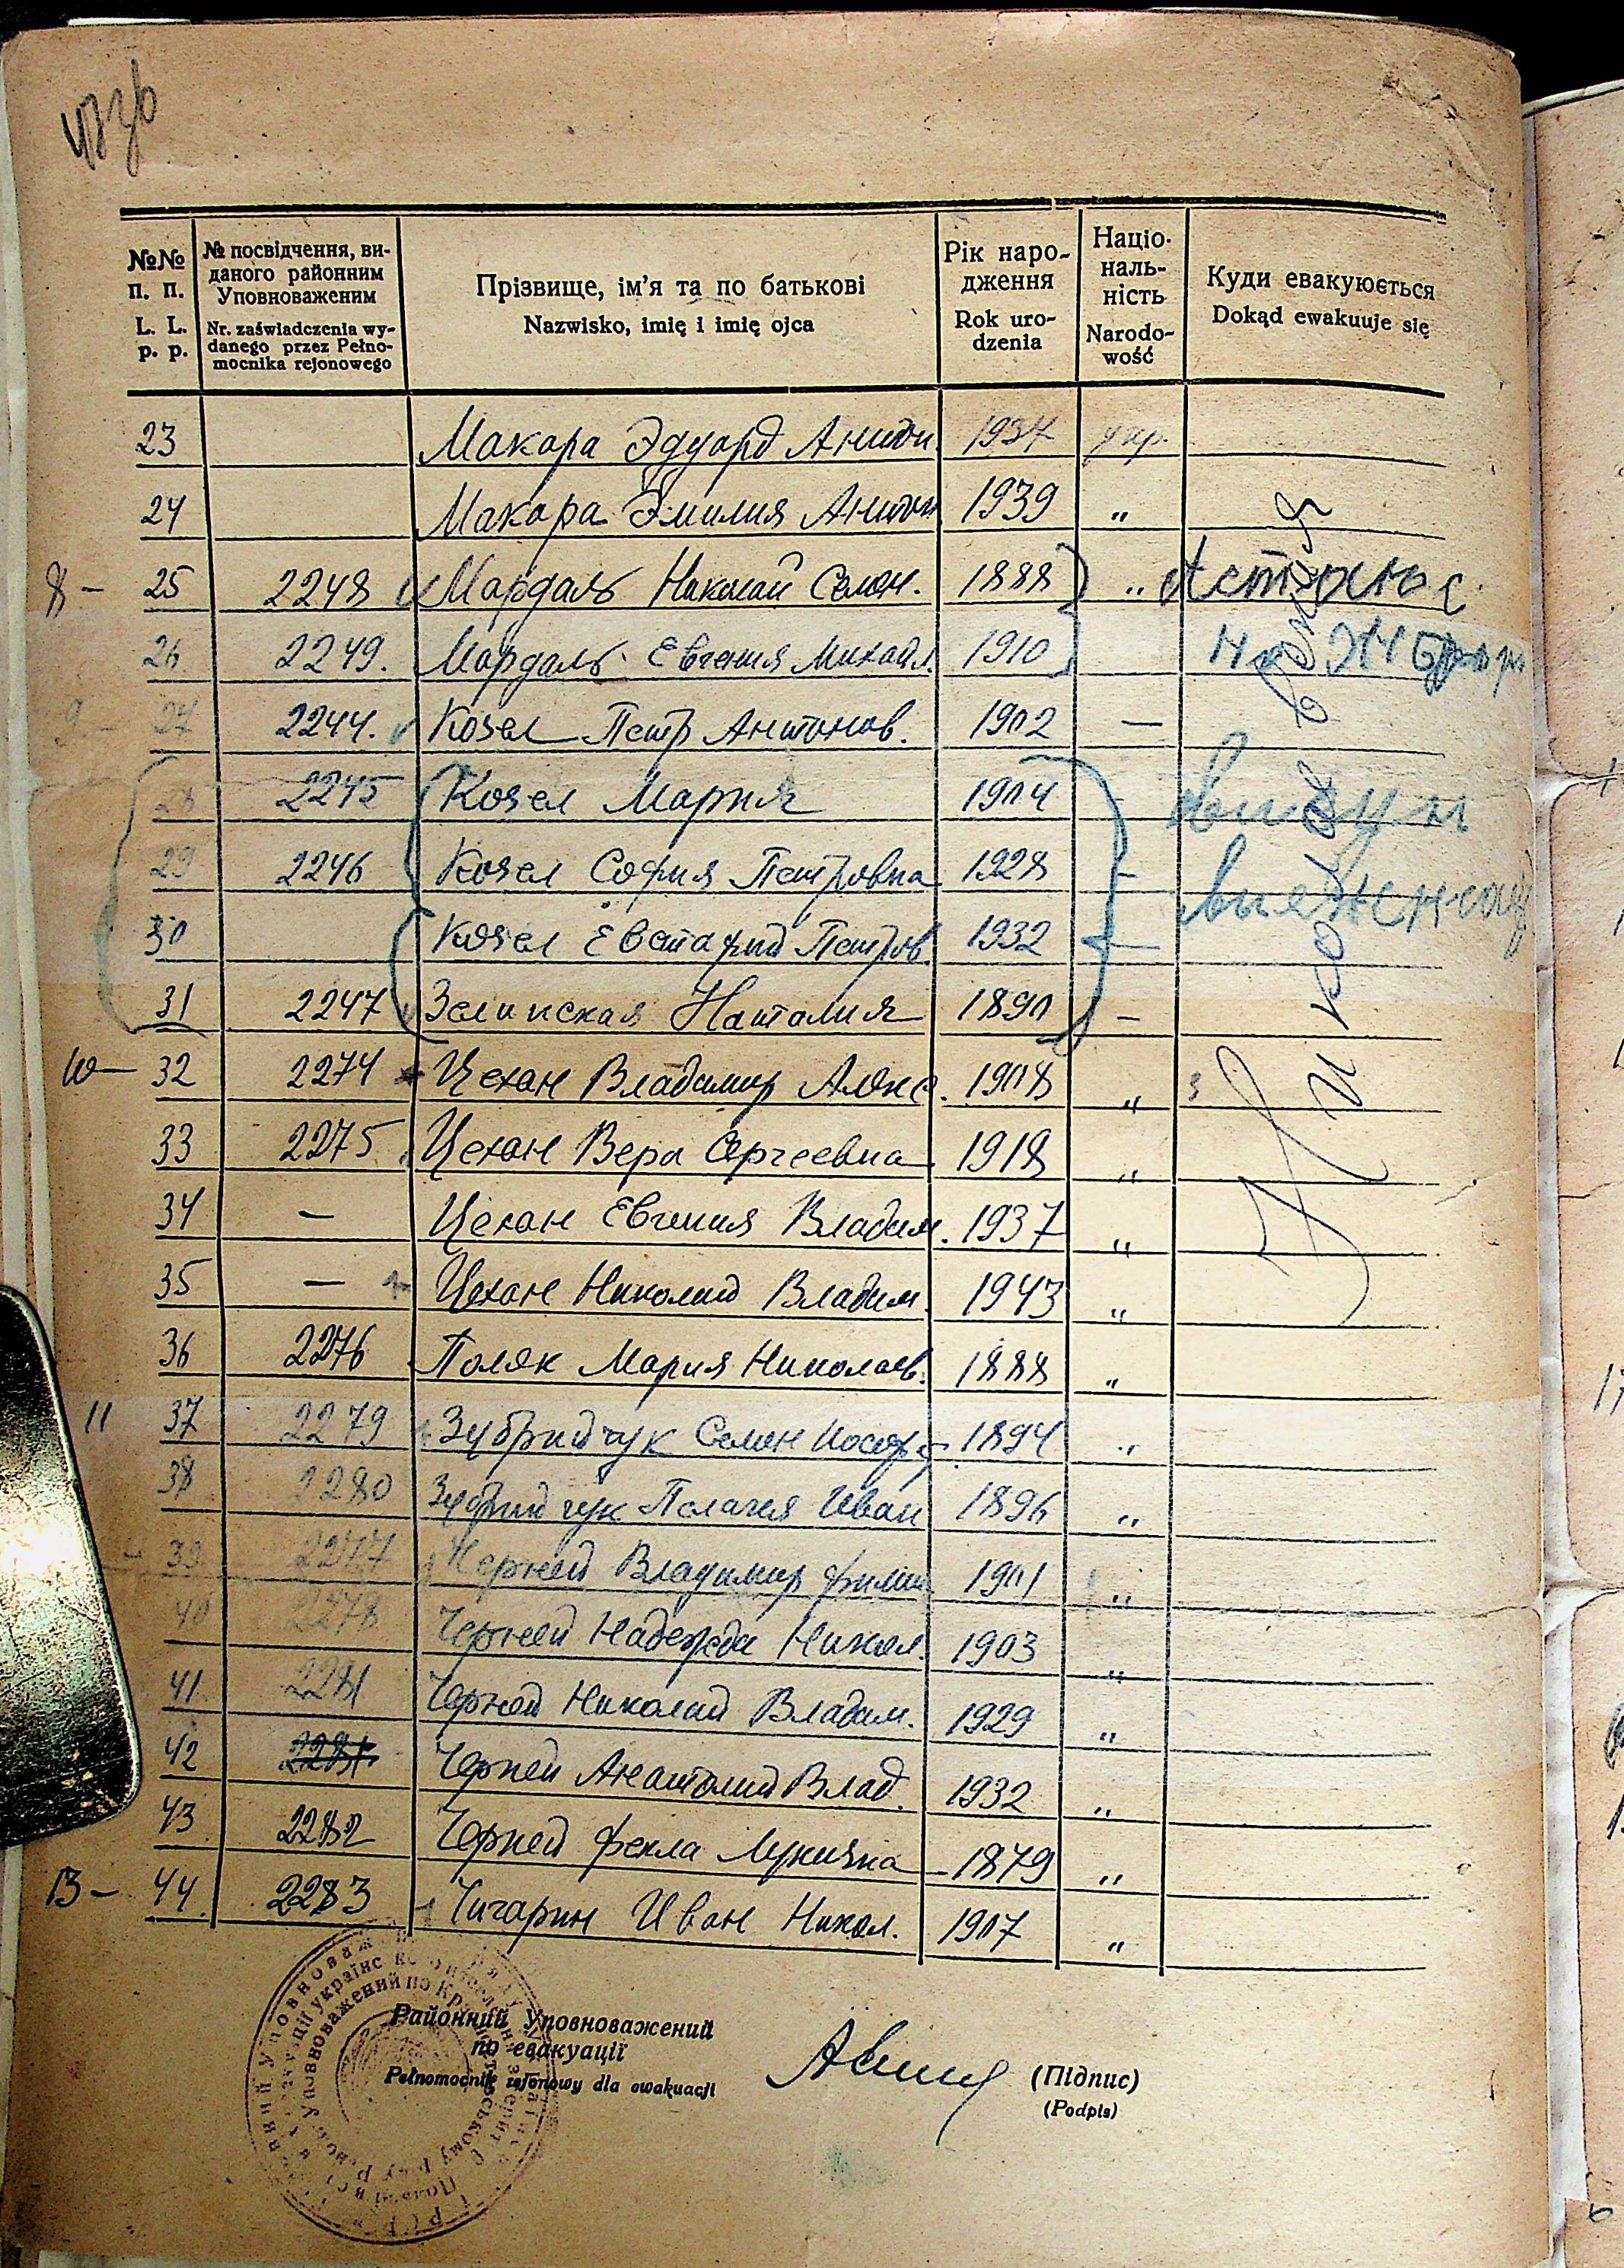 №№ п. п. L. L. p. p.
№ посвідчення, ви-
даного районним
Уповноваженим
Nr. zaświadczenia wy-
danego przez Pełno-
mocnika rejonowego
Прізвище, ім'я та по батькові
Nazwisko, imię i imię ojca
Рік наро-
дження
Rok uro-
dzenia
Націо-
наль-
ність
Narodo-
wość
Куди евакуюється
Dokąd ewakuuje się
23 Макара Эдуард Антон 1937 укр.
24 Макара Эмилия Антон 1939 "
8 - 25 2248 Мардаль Николай Семен. 1888 "
26 2249. Мардаль Евгения Михайл. 1910
9 - 27 2244. Козел Петр Антонов. 1902 —
28 2245 Козел Мария 1904 -
29 2246 Козел София Петровна 1928 -
30 Козел Евстафий Петров. 1932 —
31 2247 Зелинская Наталия 1890 -
10 - 32 2274 Цехан Владимир Алекс. 1908 "
33 2275 Цехан Вера Сергеевна 1918 "
34 — Цехан Евгения Владим. 1937 "
35 — Цехан Николай Владим. 1943 "
36 2276 Поляк Мария Николаев. 1888 "
11 37 2279 Зубрийчук Семен Иосиф. 1894 "
38 2280 Зубрийчук Пелагея Иван 1896 "
39 2277 Черней Владимир Филип 1901 "
40 2278 Черней Надежда Никол. 1903 "
41 2281 Черней Николай Владим. 1929 "
42 Черней Анатолий Влад. 1932 "
43 2282 Черней Фекла Лукична 1879 "
13 - 44. 2283 Чигарин Иван Никол. 1907 "
Районний Уповноважений
по евакуації
Pełnomocnik rejonowy dla ewakuacji
(Підпис)
(Podpis)